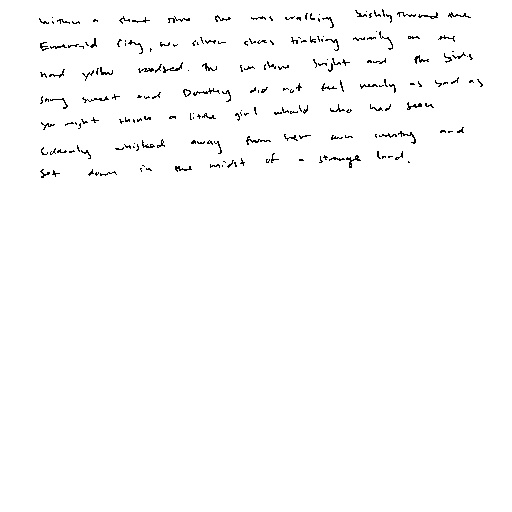 Within a short time she was walking briskly toward the
Emerald City, her silver shoes tinkling merrily on the
hard yellow roadbed. The sun shone bright and the birds
sang sweet and Dorothy did not feel nearly as bad as
you might think a little girl would who had been
suddenly whisked away from her own country and
set down in the midst of a strange land.